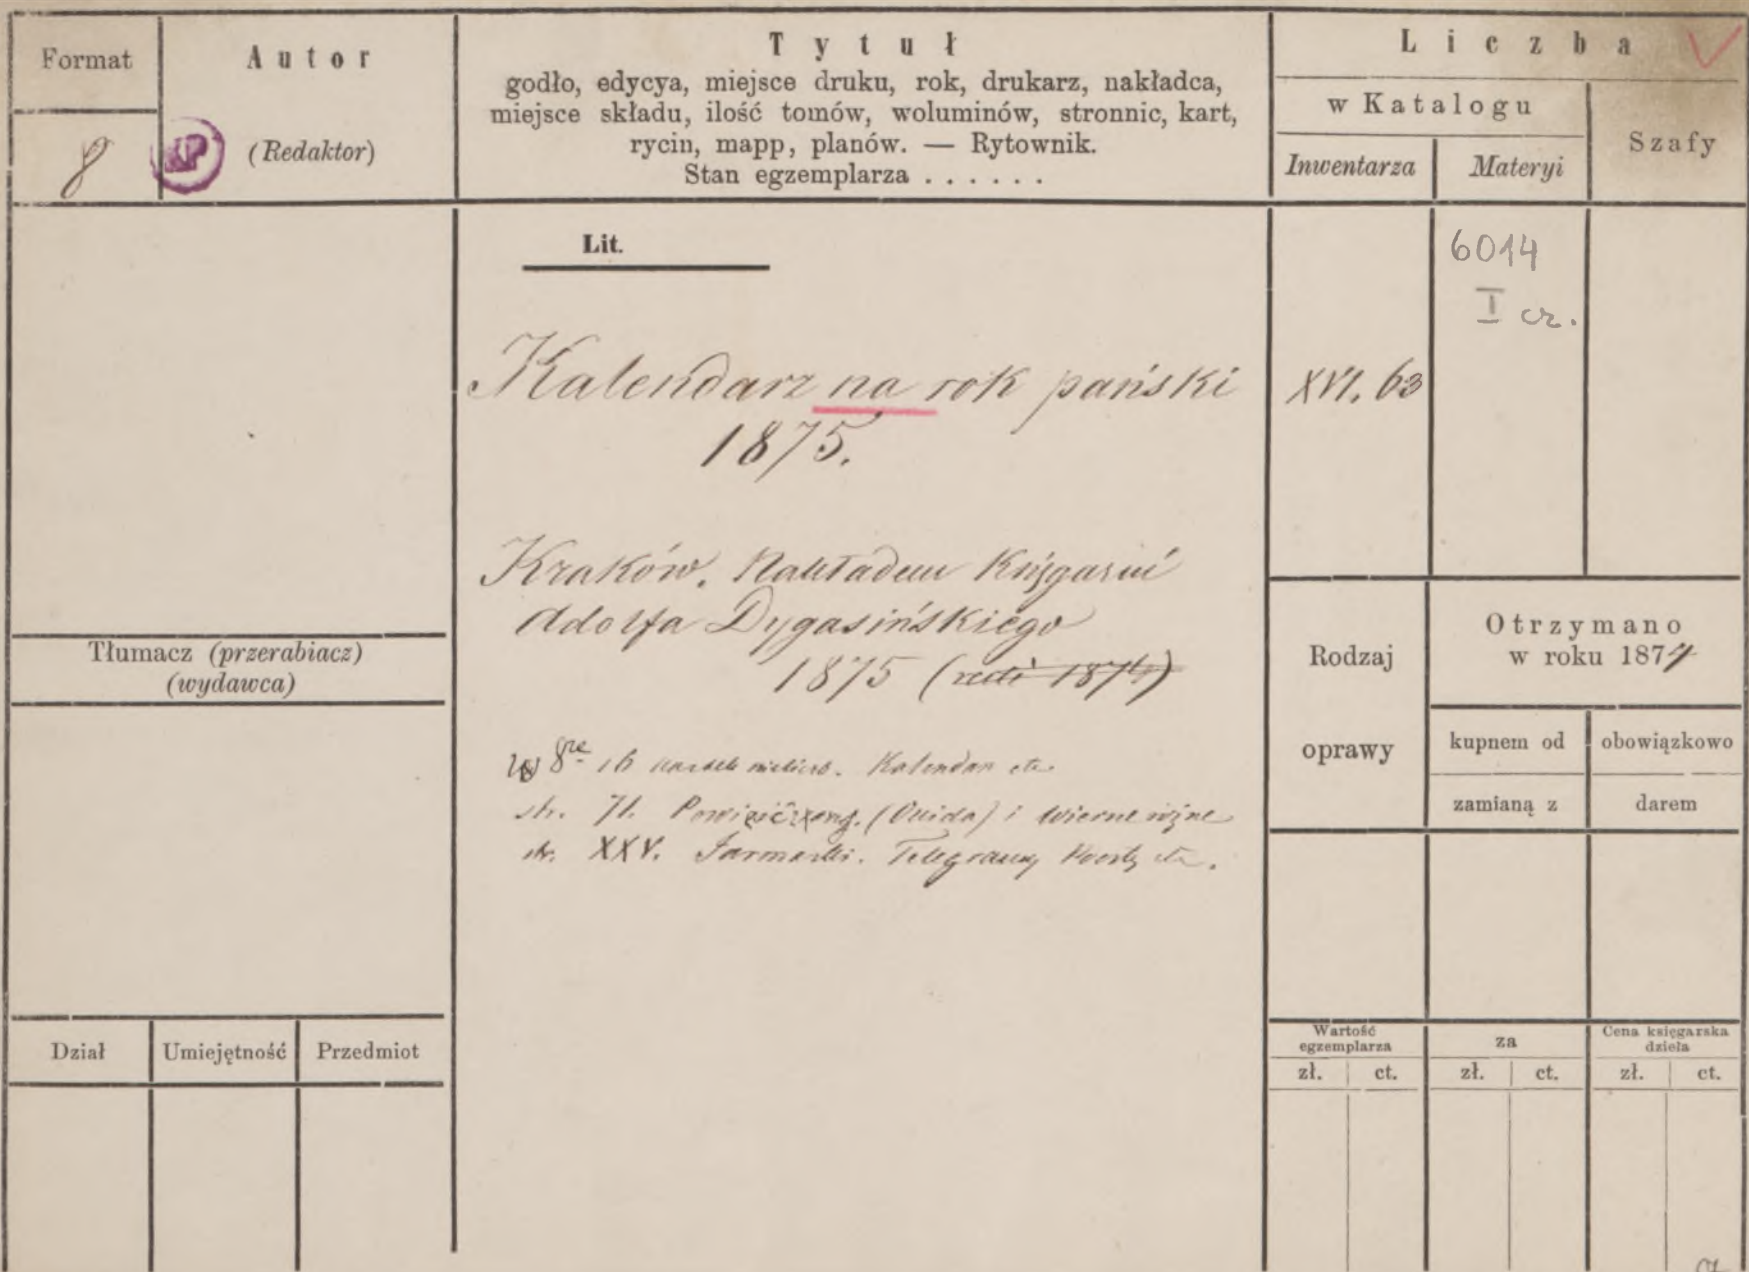 Format
8
Autor
(Redaktor)
Tytuł
godło, edycya, miejsce druku, rok, drukarz, nakładca,
miejsce składu, ilość tomów, woluminów, stronnic, kart,
rycin, mapp, planów. — Rytownik.
Stan egzemplarza . . . . . .
Liczba
w Katalogu
Inwentarza
Materyi
Szafy
Lit.
Kalendarz na rok pański
1875.
XVI. 63
6014
I cz.
Kraków. Nakładem Księgarni
Adolfa Dygasińskiego
1875 (recte 1874)
w 8re 16 kartek nieliczb. Kalendarz etc
str. 71. Powieść z ang. (Ouida) i
str. XXV. Jarmarki. Telegramy Poczty etc.
Tłumacz (przerabiacz)
(wydawca)
Rodzaj
oprawy
Otrzymano
w roku 187
kupnem od
obowiązkowo
zamianą z
darem
Dział
Umiejętność
Przedmiot
Wartość
egzemplarza
za
Cena księgarska
dzieła
zł.
ct.
zł.
ct.
zł.
ct.